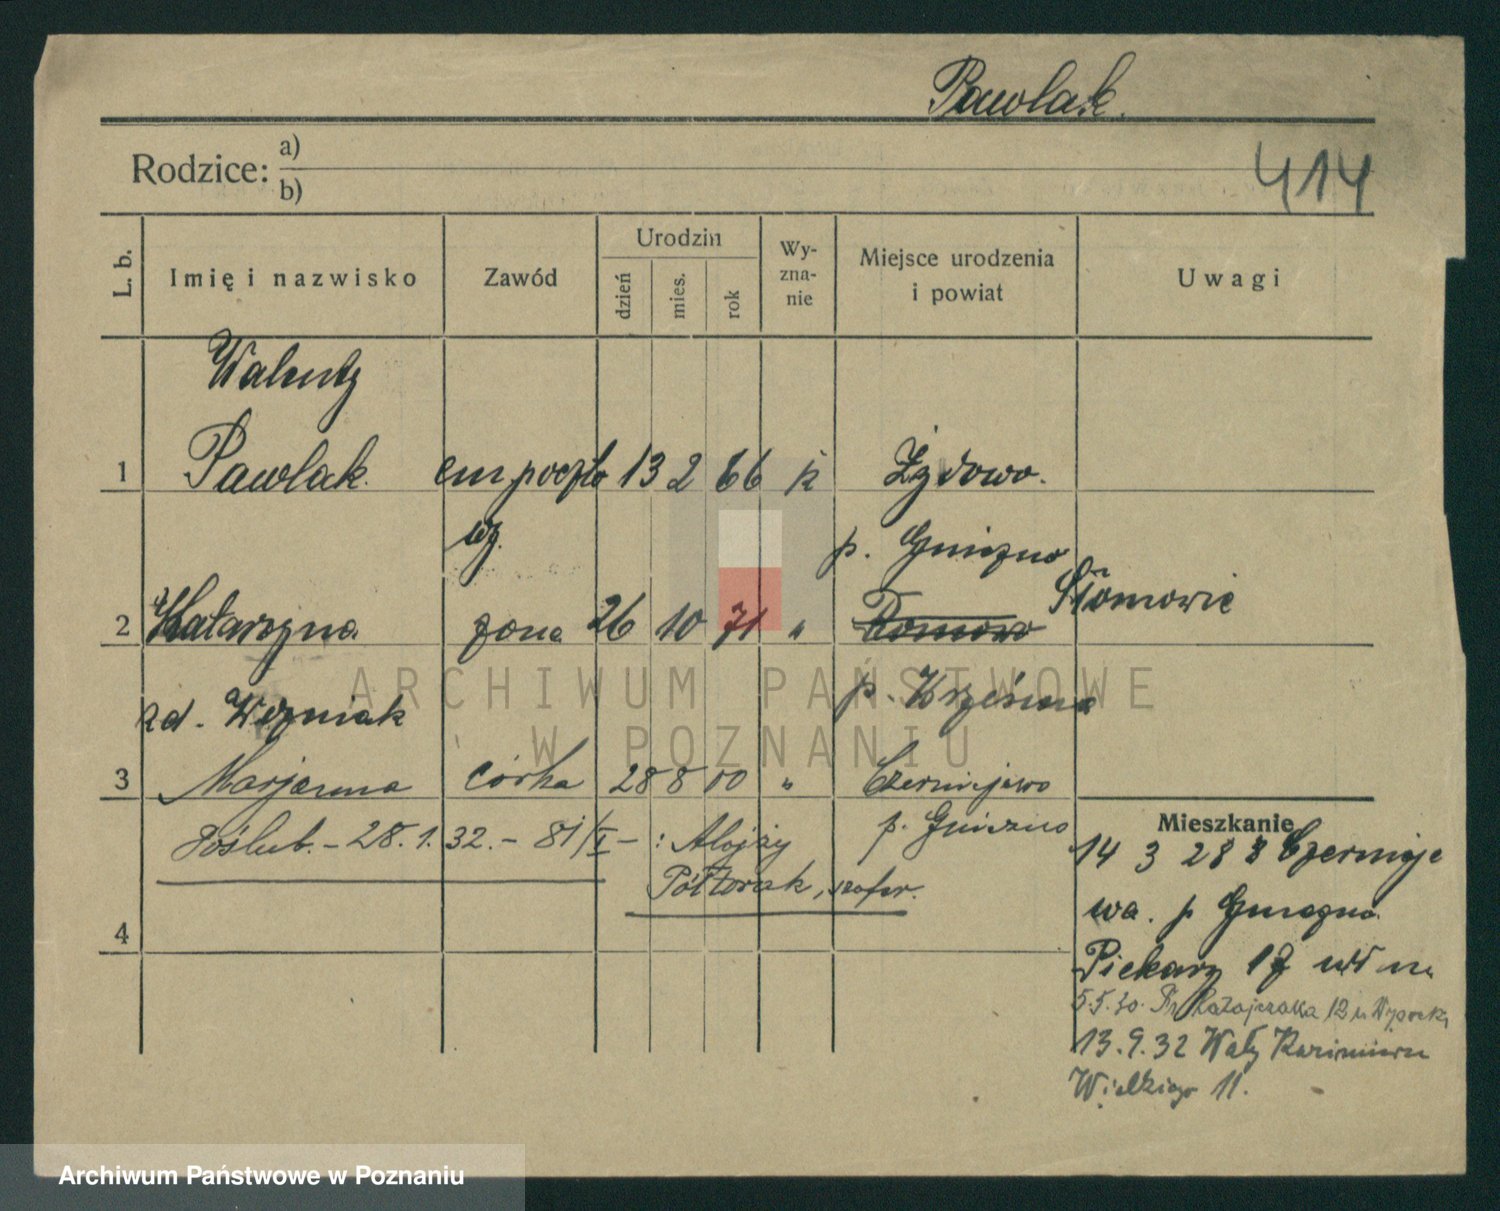 Pawlak.
Rodzice: a)
b)
414
L. b. Imię i nazwisko Zawód Urodzin dzień mies. rok Wy-zna-nie Miejsce urodzenia i powiat Uwagi
Walenty
1 Pawlak. em poczto 13 2 66 k Żydowo.
wy. p. Gniezno
2 Katarzyna żona 26 10 71 " Słomowie
zd. Woźniak p. Września
3 Marjanna córka 28 8 00 " Czerniejewo
Poślub. - 28.1.32. - 81/I - : Alojzy p. Gniezno
Półtorak, szofer.
4
Mieszkanie
14 3 28 z Czernieje
wa. p Gniezno.
Piekary 17
5.5.30. Fr. Ratajczaka 12
13.9.32 Wały Kazimierza
Wielkiego 11.
ARCHIWUM PAŃSTWOWE
W POZNANIU
Archiwum Państwowe w Poznaniu